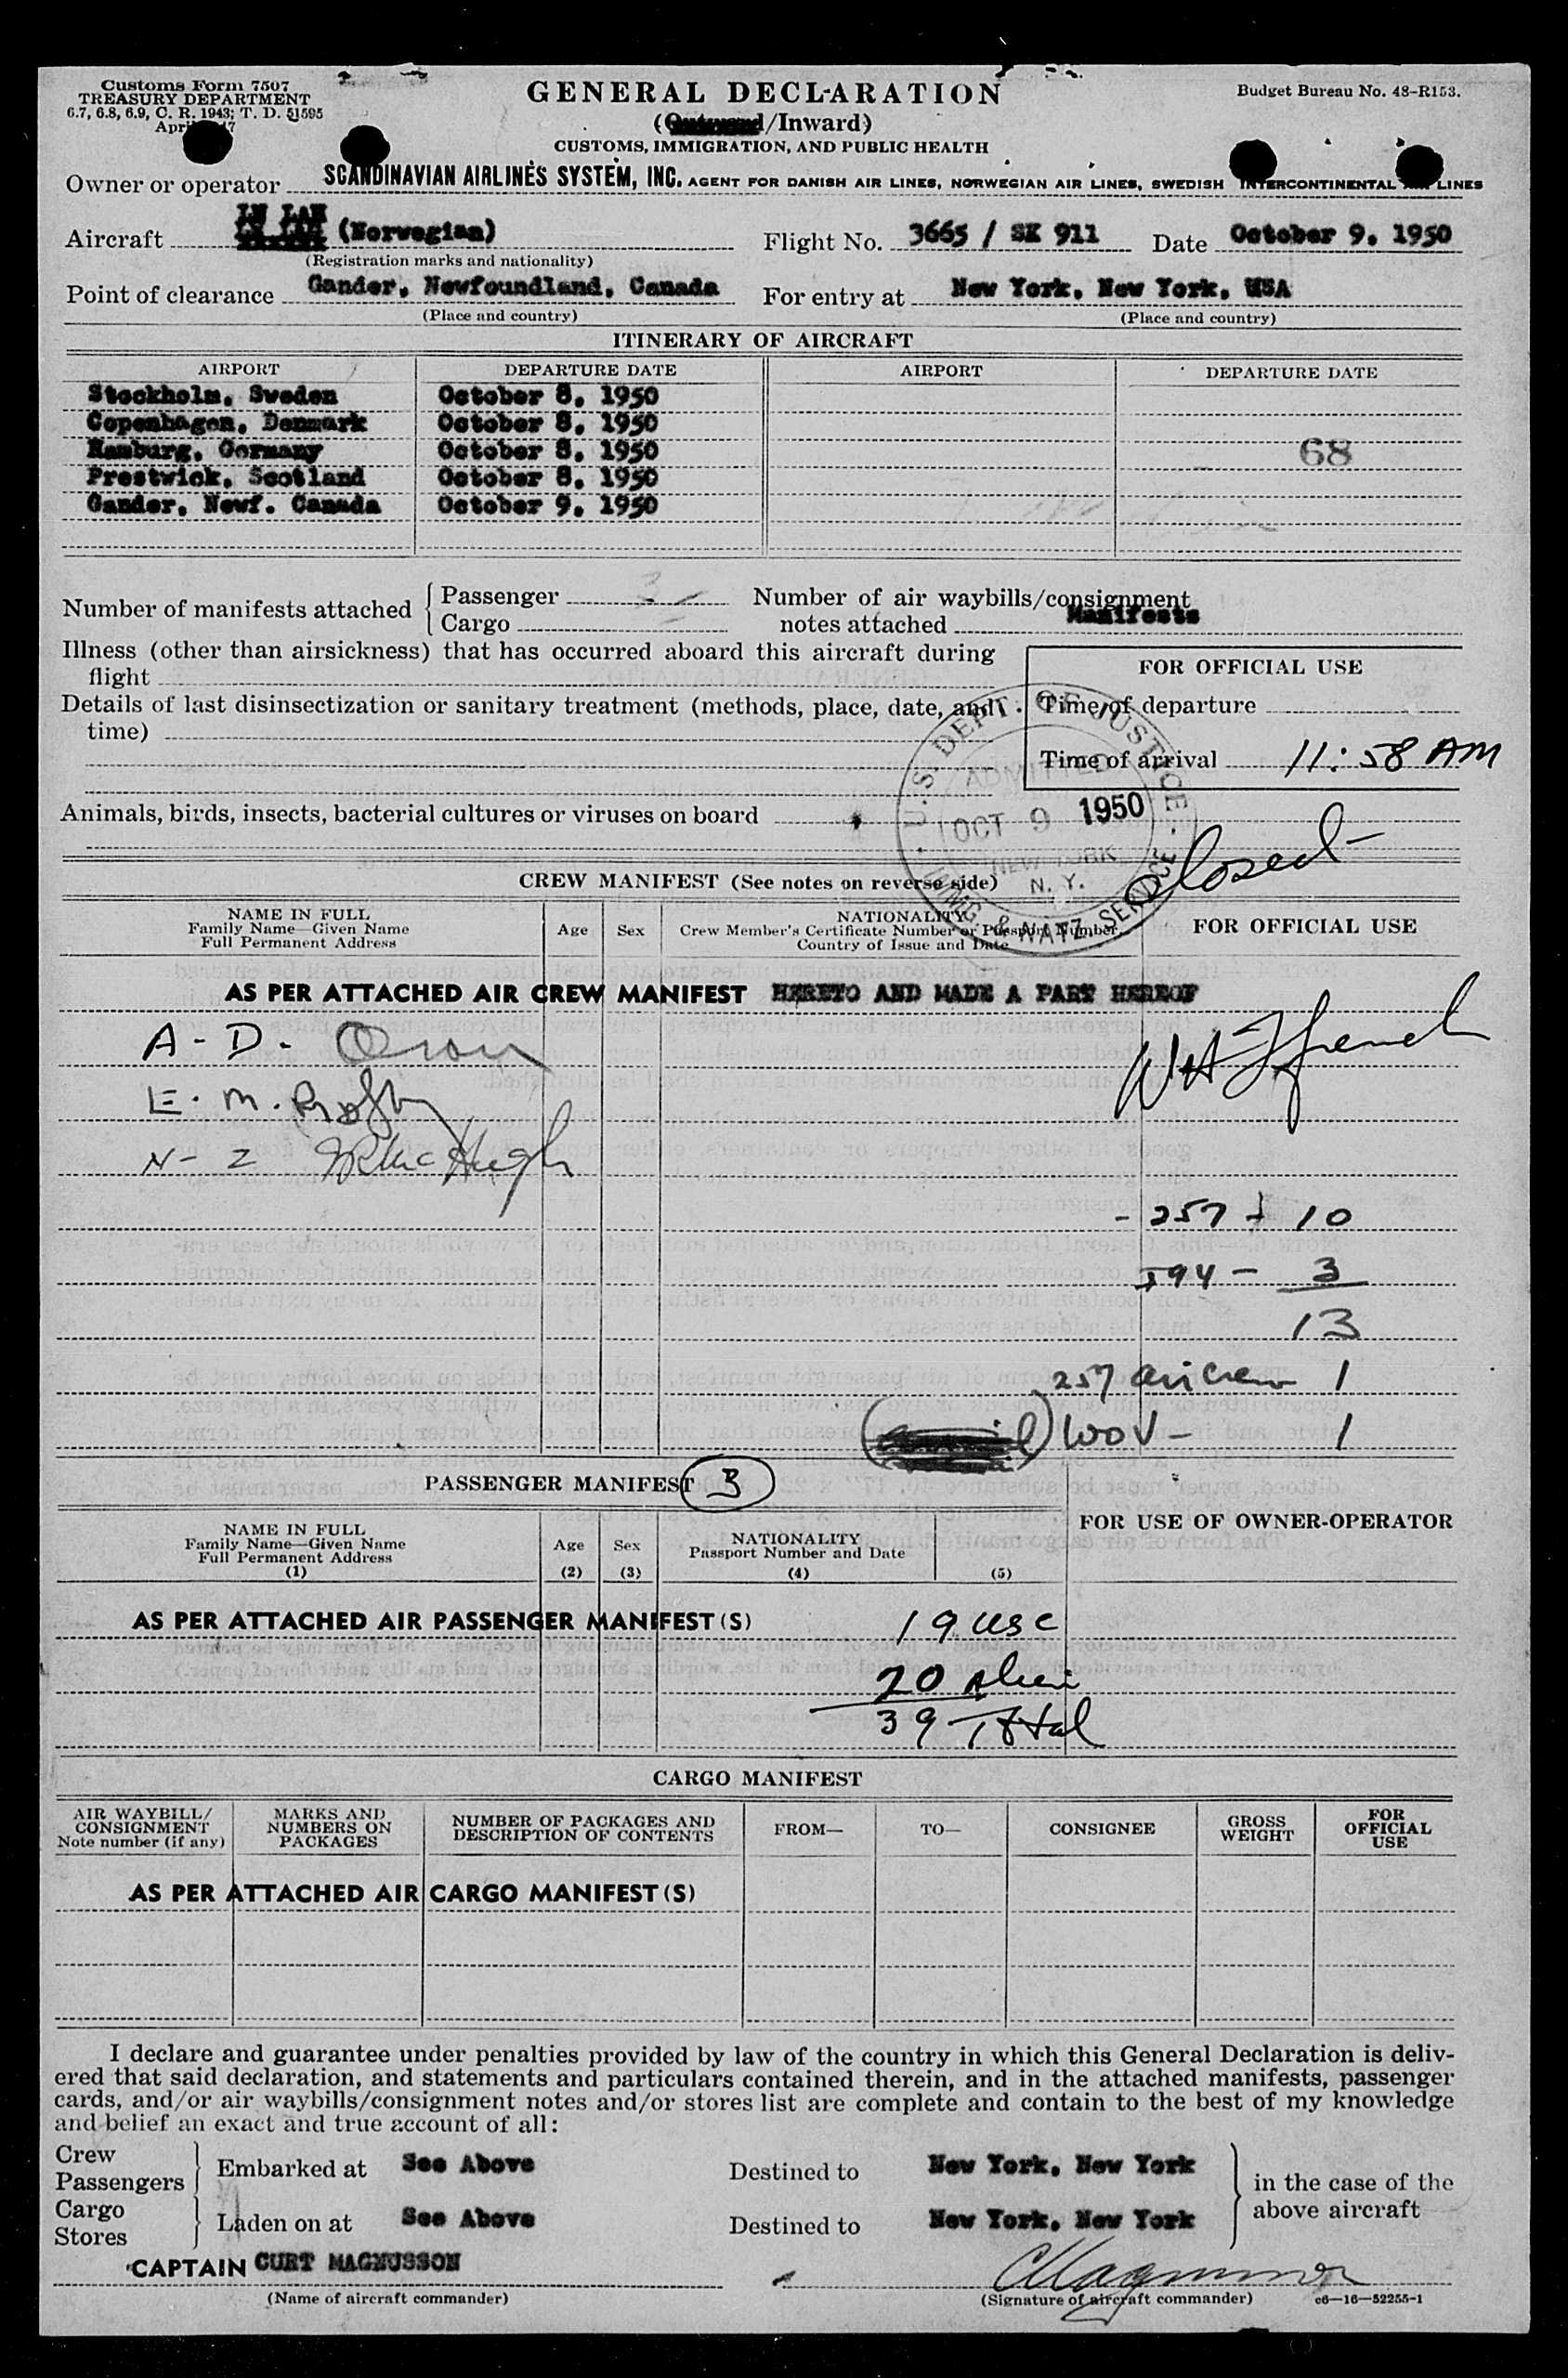 Customs Form 7507
TREASURY DEPARTMENT
6.7, 6.8, 6.9, C. R. 1943; T. D. 51595
GENERAL DECLARATION
(/Inward)
CUSTOMS, IMMIGRATION, AND PUBLIC HEALTH
Budget Bureau No. 48-R153.
Owner or operator SCANDINAVIAN AIRLINES SYSTEM, INC. AGENT FOR DANISH AIR LINES, NORWEGIAN AIR LINES, SWEDISH INTERCONTINENTAL LINES
Aircraft (Norwegian) Flight No. 3665 / SK 911 Date October 9, 1950
(Registration marks and nationality)
Point of clearance Gander, Newfoundland, Canada For entry at New York, New York, USA
(Place and country) (Place and country)
ITINERARY OF AIRCRAFT
AIRPORT DEPARTURE DATE AIRPORT DEPARTURE DATE
Stockholm, Sweden October 8, 1950
Copenhagen, Denmark October 8, 1950
Hamburg, Germany October 8, 1950
68
Prestwick, Scotland October 8, 1950
Gander, Newf. Canada October 9, 1950
Number of manifests attached Passenger Cargo
Number of air waybills/consignment
notes attached Manifests
Illness (other than airsickness) that has occurred aboard this aircraft during
flight
Details of last disinsectization or sanitary treatment (methods, place, date, and
time)
FOR OFFICIAL USE
Time of departure
Time of arrival 11:58 AM
Animals, birds, insects, bacterial cultures or viruses on board
U. S. DEPT. OF JUSTICE
ADMITTED
OCT 9 1950
NEW YORK
N. Y.
IMMIG. & NATZ. SERVICE
closed
CREW MANIFEST (See notes on reverse side)
NAME IN FULL
Family Name—Given Name
Full Permanent Address
Age Sex
NATIONALITY
Crew Member's Certificate Number or Passport Number
Country of Issue and Date
FOR OFFICIAL USE
AS PER ATTACHED AIR CREW MANIFEST HERETO AND MADE A PART HEREOF
A-D.
E. M.
N-2 McHugh
- 257 + 10
594 - 3
13
257 aircrew 1
1
PASSENGER MANIFEST 3
NAME IN FULL
Family Name—Given Name
Full Permanent Address
(1)
Age
(2)
Sex
(3)
NATIONALITY
Passport Number and Date
(4) (5)
FOR USE OF OWNER-OPERATOR
AS PER ATTACHED AIR PASSENGER MANIFEST(S) 19 USC
20 Alien
39 Total
CARGO MANIFEST
AIR WAYBILL/
CONSIGNMENT
Note number (if any)
MARKS AND
NUMBERS ON
PACKAGES
NUMBER OF PACKAGES AND
DESCRIPTION OF CONTENTS
FROM—
TO—
CONSIGNEE
GROSS
WEIGHT
FOR
OFFICIAL
USE
AS PER ATTACHED AIR CARGO MANIFEST(S)
I declare and guarantee under penalties provided by law of the country in which this General Declaration is deliv-
ered that said declaration, and statements and particulars contained therein, and in the attached manifests, passenger
cards, and/or air waybills/consignment notes and/or stores list are complete and contain to the best of my knowledge
and belief an exact and true account of all:
Crew
Passengers
Embarked at See Above Destined to New York, New York
Cargo
Stores
Laden on at See Above Destined to New York, New York
in the case of the
above aircraft
CAPTAIN CURT MAGNUSSON
CMagnusson
(Name of aircraft commander) (Signature of aircraft commander) c6—16—52255-1